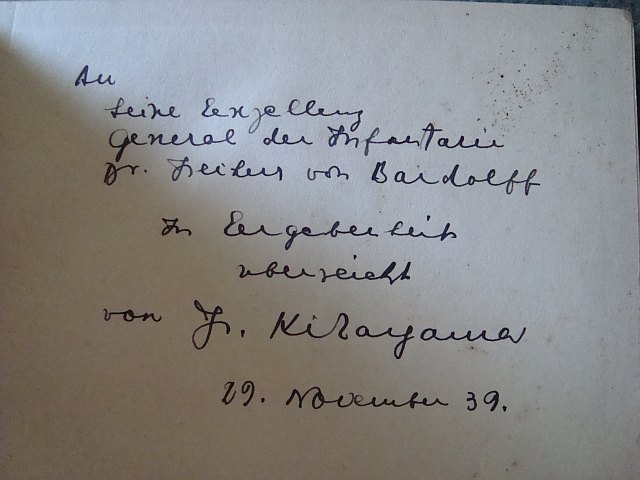 An
Seine Exzellenz
General der Infanterie
Dr. Freiherr von Bardolff
In Ergebenheit
überreicht
von J. Kitayama
29. November 39.